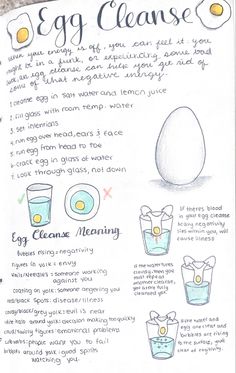 Egg Cleanse
when your energy is off, you can feel it. you
might be in a funk, or experiencing some bad
an egg cleanse can help you get rid of
some of that negative energy.
1. cleanse egg in salt water and lemon juice
2. fill glass with room temp. water
3. set intentions
4. run egg over head, ears & face
5. run egg from head to toe
6. crack egg in glass of water
7. look through glass, not down
Egg Cleanse Meaning
bubbles rising: negativity
figures in yolk: envy
veils/needles: someone working
against you
coating on yolk: someone angering you
red/black spots: disease/illness
cloudy/black/grey yolk: evil is near
around yolk: decision making frequently
cloudy/swirly figures: emotional problems
cobwebs: people want you to fail
bubbles around yolk: good spirits
watching you
if theres blood
in your egg cleanse
heavy negativity
lies within you, will
cause illness
if the water turns
cloudy, then you
must repeat
another cleanse,
not fully
cleansed yet
if the water and
egg are clear and
bubbles are rising
to the surface, your
clear of negativity